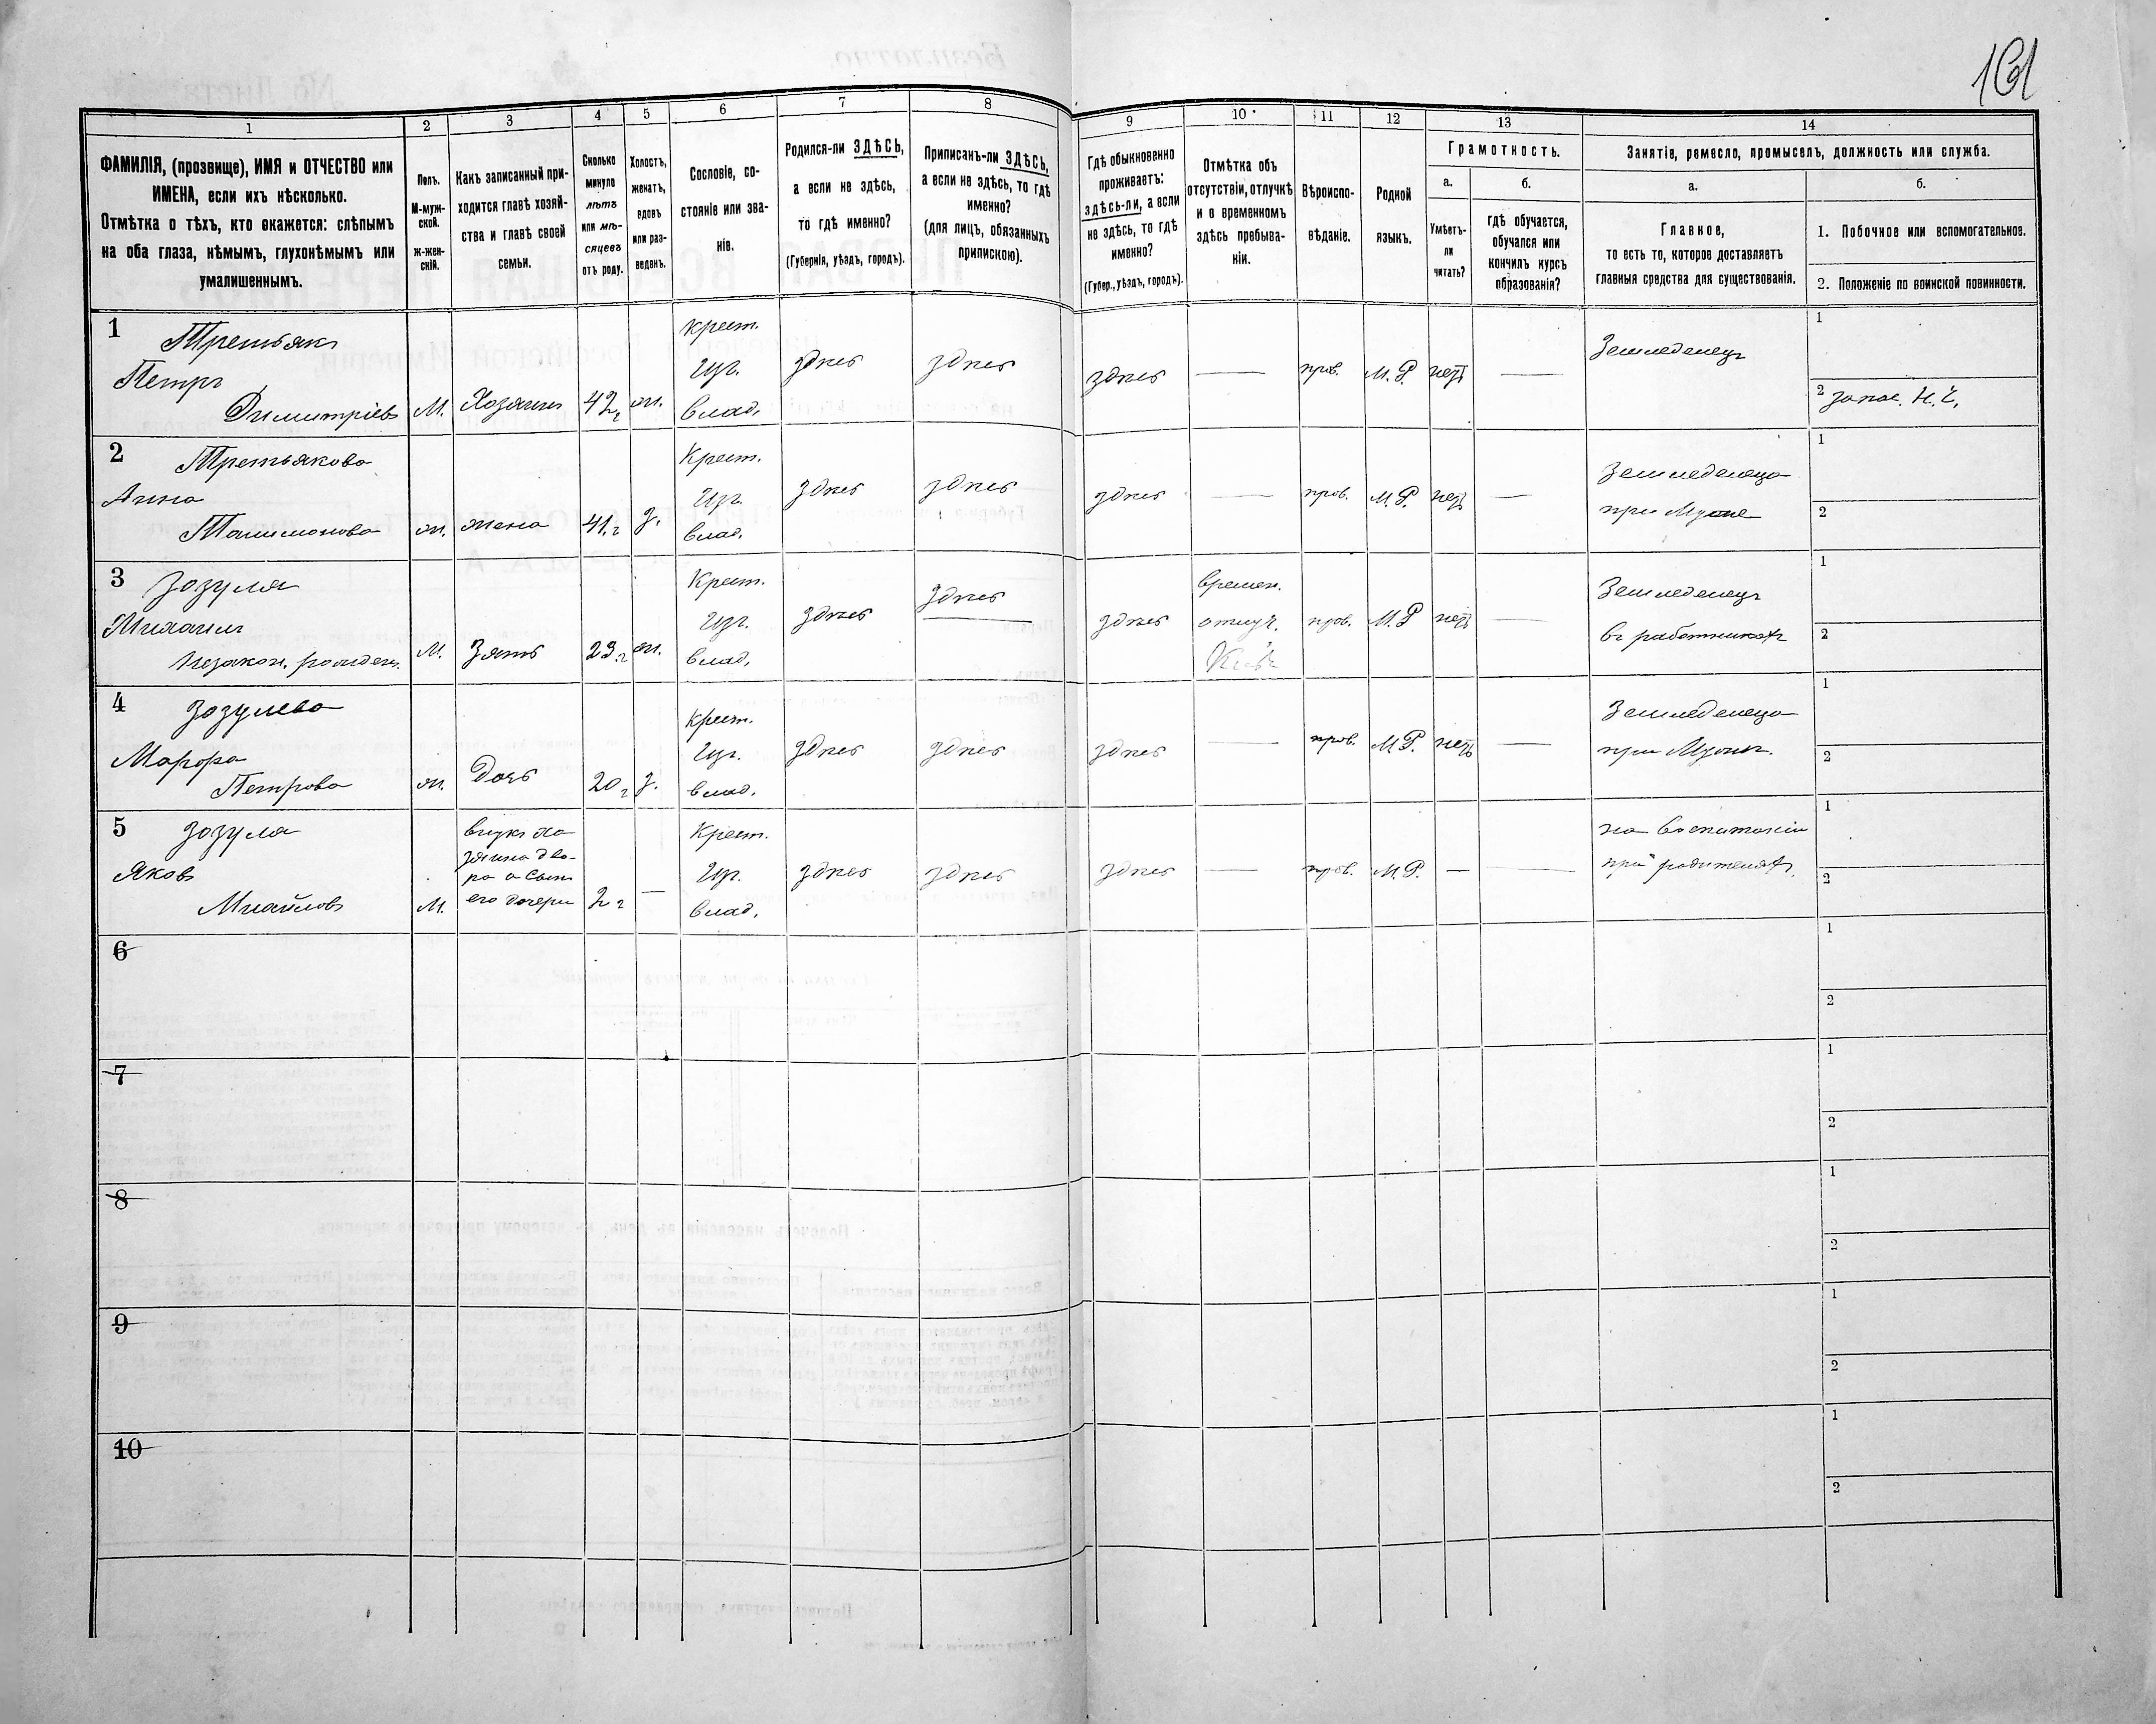 161
1
2
3
4
5
6
7
8
9
10
11
12
13
14
ФАМИЛІЯ, (прозвище), ИМЯ и ОТЧЕСТВО или
ИМЕНА, если ихъ нѣсколько.
Отмѣтка о тѣхъ, кто окажется: слѣпымъ
на оба глаза, нѣмымъ, глухонѣмымъ или
умалишеннымъ.
Полъ.
М-муж-
ской.
ж-жен-
скій.
Какъ записанный при-
ходится главѣ хозяй-
ства и главѣ своей
семьи.
Сколько
минуло
лѣтъ
или мѣ-
сяцевъ
отъ роду.
Холостъ,
женатъ,
вдовъ
или раз-
веденъ.
Сословіе, со-
стояніе или зва-
ніе.
Родился-ли ЗДѢСЬ,
а если не здѣсь,
то гдѣ именно?
(Губернія, уѣздъ, городъ).
Приписанъ-ли ЗДѢСЬ,
а если не здѣсь, то гдѣ
именно?
(для лицъ, обязанныхъ
припискою).
Гдѣ обыкновенно
проживаетъ:
здѣсь-ли, а если
не здѣсь, то гдѣ
именно?
(Губер., уѣздъ, городъ).
Отмѣтка объ
отсутствіи, отлучкѣ
и о временномъ
здѣсь пребыва-
ніи.
Вѣроиспо-
вѣданіе.
Родной
языкъ.
Грамотность.
а.
б.
Умѣетъ-
ли
читать?
гдѣ обучается,
обучался или
кончилъ курсъ
образованія?
Занятіе, ремесло, промыселъ, должность или служба.
а.
б.
Главное,
то есть то, которое доставляетъ
главныя средства для существованія.
1. Побочное или вспомогательное.
2. Положеніе по воинской повинности.
1
Третьякъ
Петръ
Димитріевъ
М.
Хозяинъ
42 г
ж.
крест.
изъ.
влад.
здѣсь
здѣсь
здѣсь
—
прав.
М. Р.
нетъ
—
Земледелецъ
1
2 запас. Н. Ч.
2
Третьякова
Анна
ж.
жена
41. г
з.
Крест.
изъ.
влад.
здѣсь
здѣсь
здѣсь
—
прав.
М. Р.
нетъ
—
Земледелеца
при Муже
1
2
3
Зозуля
Михаилъ
Незакон. рожден.
М.
Зять
23. г
ж.
Крест.
изъ.
влад.
здѣсь
здѣсь
здѣсь
времен.
отлуч.
прав.
М. Р
нетъ
—
Земледелецъ
въ работникахъ
1
2
4
Зозулева
Марфа
Петрова
ж.
Дочь
20 г
з.
крест.
изъ.
влад.
здѣсь
здѣсь
здѣсь
—
прав.
М. Р.
нетъ
—
Земледелеца
при Мужѣ.
1
2
5
Зозуля
Яковъ
Михайловъ
М.
внукъ хо
зяина дво-
ра а сынъ
его дочери
2 г
—
Крест.
изъ.
влад.
здѣсь
здѣсь
здѣсь
—
прав.
М. Р.
—
—
на воспитаніи
при родителяхъ.
1
2
6
1
2
7
1
2
8
1
2
9
1
2
10
1
2